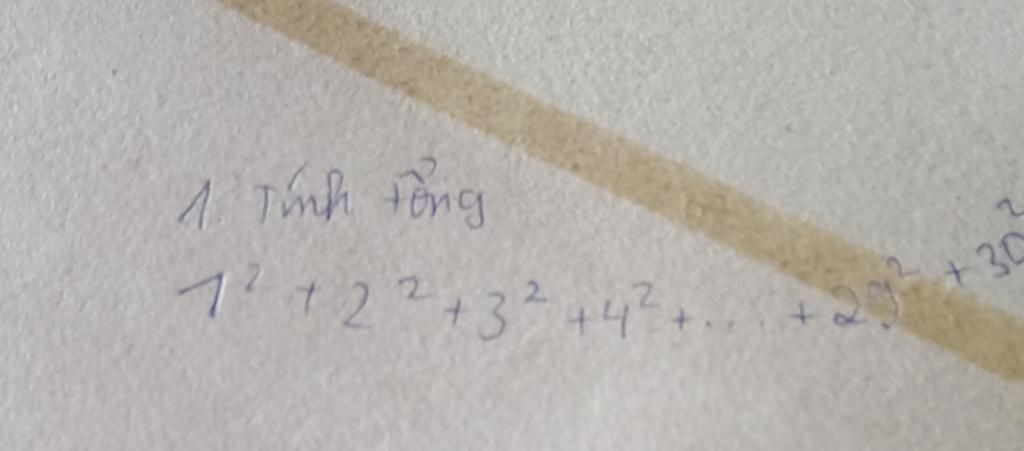 1. Tính tổng
1² + 2² + 3² + 4² + ... + 29² + 30²